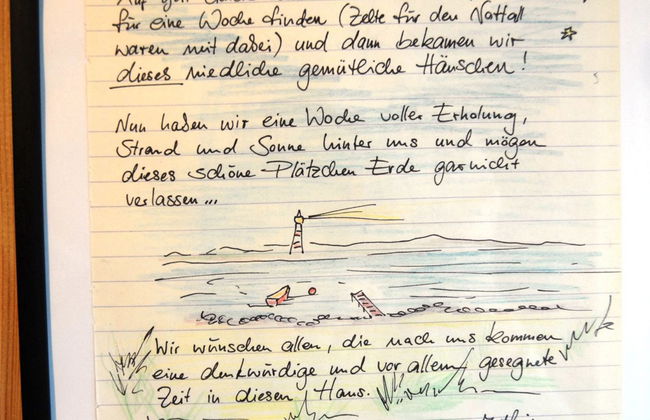 für eine Woche finden (Zelte für den Notfall
waren mit dabei) und dann bekamen wir
dieses niedliche gemütliche Häuschen!
Nun haben wir eine Woche voller Erholung,
Strand und Sonne hinter uns und mögen
dieses schöne Plätzchen Erde garnicht
verlassen...
Wir wünschen allen, die nach uns kommen
eine denkwürdige und vor allem gesegnete
Zeit in diesem Haus.